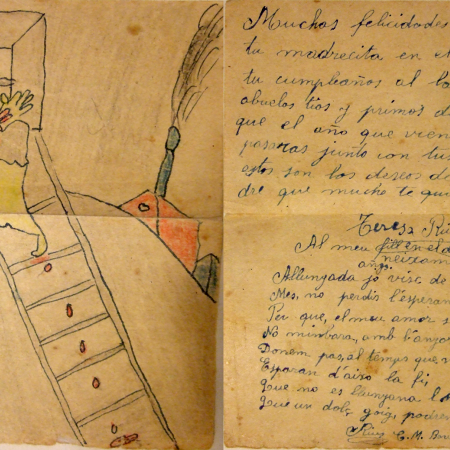 Muchas felicidades
tu madrecita en el
tu cumpleaños al la
abuelos tios y primos d
que el año que vien
pasaras junto con tus
estos son los deseos de
dre que mucho te qui
Teresa Rú
Al meu fill en el
neixam
Allunyada jo visc de
Mes, no perdis l'esperan
Per que, el meu amor s
No minbara, amb l'anyor
Donem pas, al temps que v
Esperan d'aixo la fi,
Que no es llunyana l
Que un dolç goig, podrem
C. M. Am